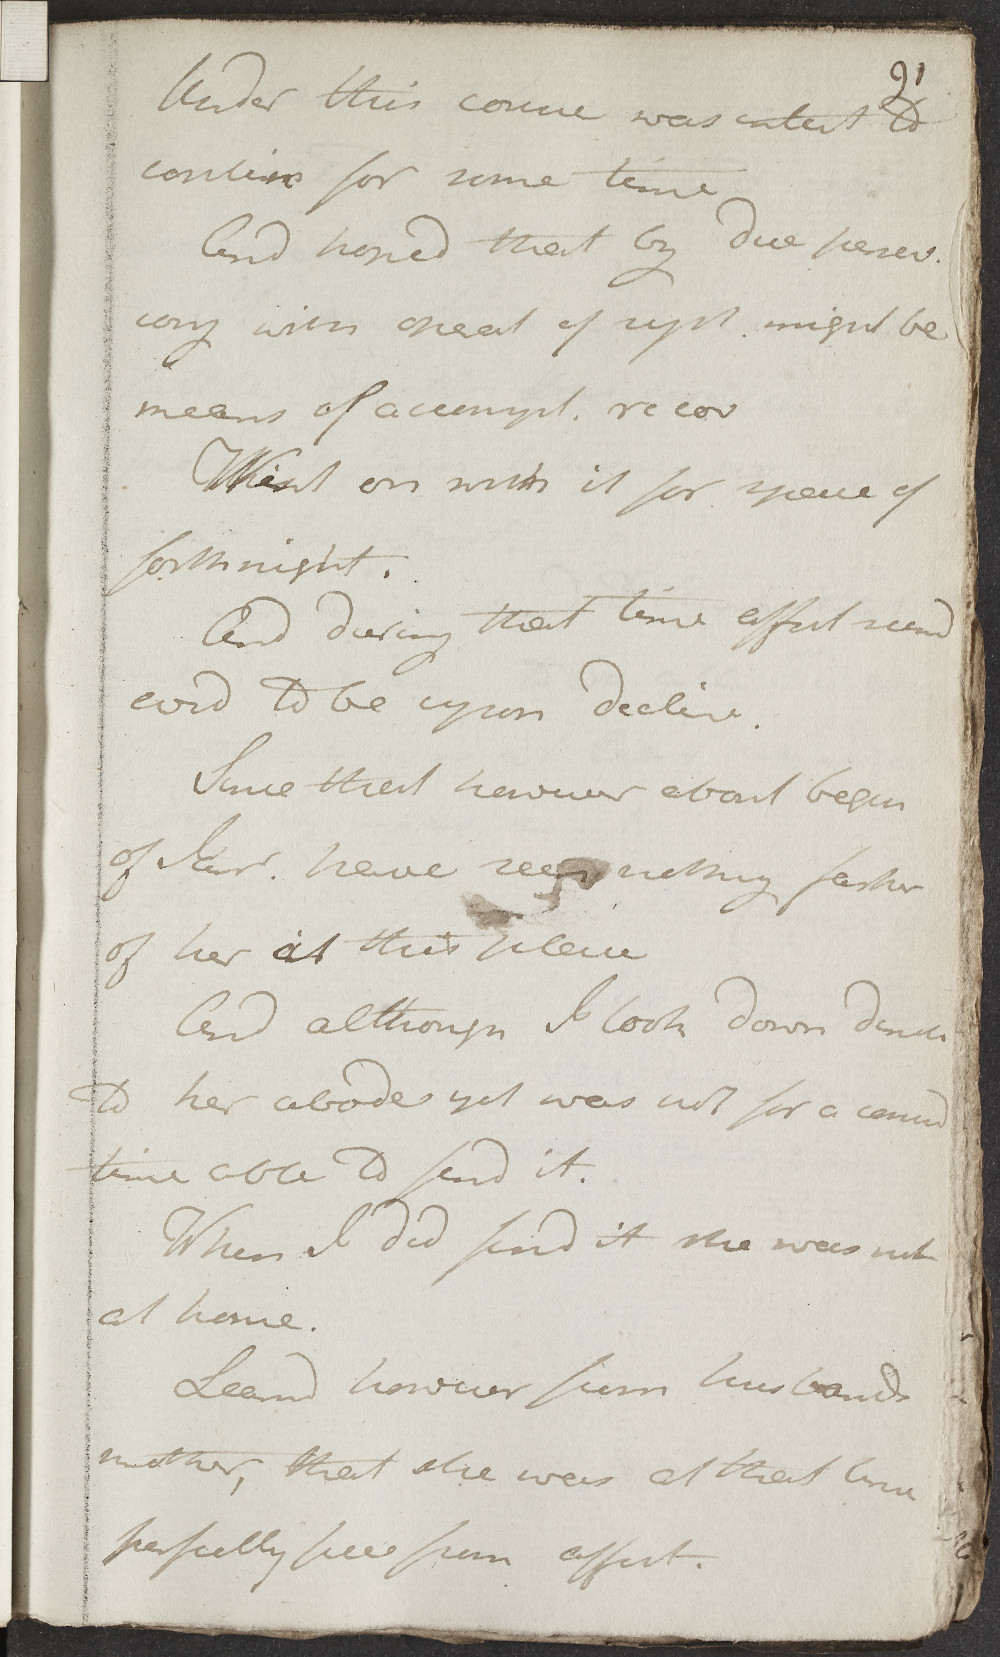 91
Under this course was intent to
contin for some time
And hoped that by due persev.
ang with repeat of rept. might be
means of accompl. recov
Went on with it for space of
forthnight.
And during that time affect seemd
evid to be upon decline.
Since that however about begin
of Janr. have seen nothing farther
of her at this place
And although I took down direct.
to her abode yet was not for a consid
time able to find it.
When I did find it she was not
at home.
Learnd however from husbands
mother, that she was at that time
perfectly free from affect.